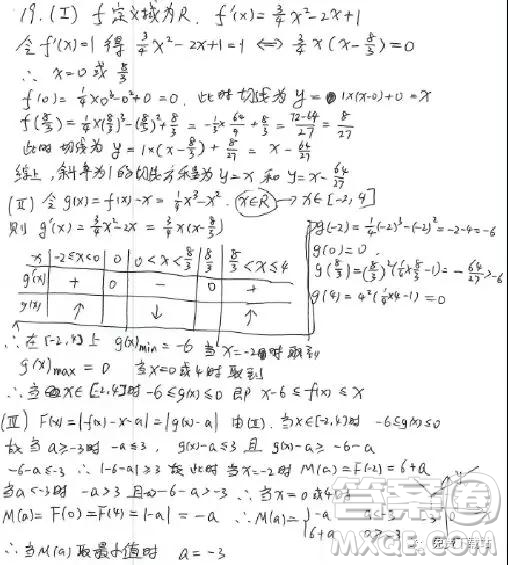 19. (I) f 定义域为R, f'(x)=3/4x²-2x+1
令f'(x)=1 得 3/4x²-2x+1=1 ⟺ 3/4x(x-8/3)=0
∴ x=0 或 8/3
f(0)=1/4×0³-0²+0=0, 此时切线为 y=1×(x-0)+0=x
f(8/3)=1/4×(8/3)³-(8/3)²+8/3=-1/3×64/9+8/3=(72-64)/27=8/27
此时切线为 y=1×(x-8/3)+8/27=x-64/27
综上,斜率为1的切线方程为y=x 和 y=x-64/27
(II) 令g(x)=f(x)-x=1/4x³-x². (x∈R) → x∈[-2,4]
则 g'(x)=3/4x²-2x=3/4x(x-8/3)
x -2≤x<0 0 0<x<8/3 8/3 8/3<x≤4
g'(x) + 0 - 0 +
g(x) ↑ ↓ ↑
g(-2)=1/4(-2)³-(-2)²=-2-4=-6
g(0)=0
g(8/3)=(8/3)²(1/4×8/3-1)=-64/27>-6
g(4)=4²(1/4×4-1)=0
∴ 在[-2,4]上 g(x)min=-6 当x=-2时取到
g(x)max=0 当x=0或4时取到
∴ 当x∈[-2,4]时 -6≤g(x)≤0 即 x-6≤f(x)≤x
(III) F(x)=|f(x)-x-a|=|g(x)-a| 由(II), 当x∈[-2,4]时 -6≤g(x)≤0
故当a≥-3时 -a≤3, g(x)-a≤3 且 g(x)-a≥-6-a
-6-a≤-3 ∴ |-6-a|≥3 故此时当x=-2时 M(a)=F(-2)=6+a
当a<-3时 -a>3 且 -6-a>-3 ∴ 当x=0或4时
M(a)=F(0)=F(4)=|-a|=-a ∴ M(a)={-a a≤-3
6+a a>-3
∴ 当M(a)取最小值时 a=-3
答案圈